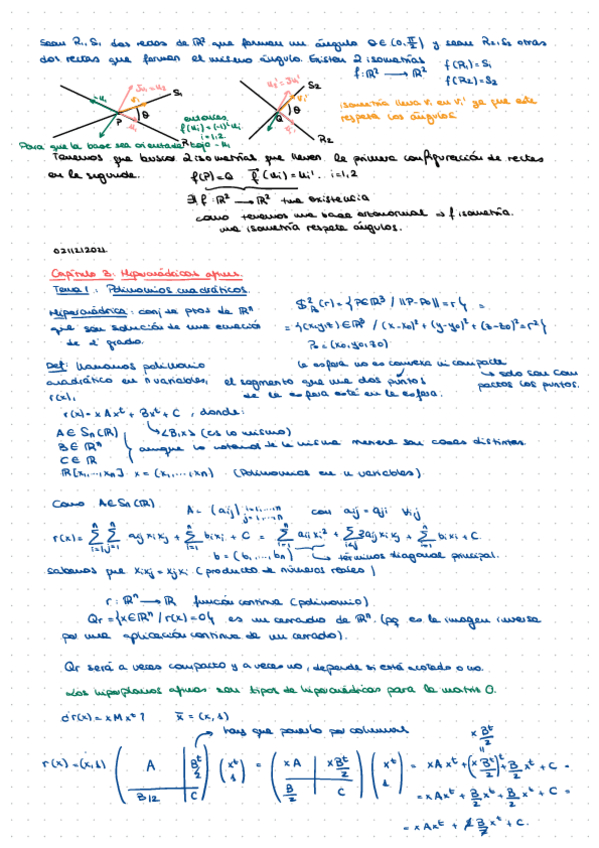 Sean R₁, S₁ dos rectas de ℝ² que forman un ángulo θ∈(0, π/2) y sean R₂, S₂ otras
dos rectas que forman el mismo ángulo. Existen 2 isometrías f(R₁)=S₁
f: ℝ² → ℝ² f(R₂)=S₂
S₁
S₂
θ
P
Q
R₂
isometría lleva v₁ en v₁' ya que este
respeta los ángulos.
entonces
f(uᵢ)=(-1)ⁱuᵢ
i=1,2
Para que la base sea orientada bajo -u₁
Tenemos que buscar 2 isometrías que lleven la primera configuración de rectas
en la segunda. f(P)=Q f(uᵢ)=uᵢ' i=1,2
∃f: ℝ² → ℝ² tma existencia
como tenemos una base ortonormal ⇒ f isometría.
una isometría respeta ángulos.
02/12/2021
Capítulo 3: Hipercuádricas afines.
Tema 1: Polinomios cuadráticos.
Hipercuádrica: conj de ptos de ℝⁿ
que son solución de una ecuación
de 2º grado.
S²_P₀(r) = {P∈ℝ³ / ||P-P₀||=r} =
= {(x,y,z)∈ℝ³ / (x-x₀)²+(y-y₀)²+(z-z₀)²=r²}
P₀=(x₀,y₀,z₀)
Def: Llamamos polinomio
cuadrático en n variables,
r(x),
la esfera no es convexa ni compacta
el segmento que une dos puntos
de la esfera está en la esfera.
solo son com
pactos los puntos.
r(x)=xAxᵗ + Bxᵗ + C, donde:
A∈Sₙ(ℝ)
B∈ℝⁿ
C∈ℝ
<B,x> (es lo mismo)
aunque lo notamos de la misma manera son cosas distintas
ℝ[x₁,...,xₙ] x=(x₁,...,xₙ) (Polinomios en n variables)
Como A∈Sₙ(ℝ) A=(aᵢⱼ) i=1,...,n j=1,...,n con aᵢⱼ=aⱼᵢ ∀i,j
r(x)= Σᵢ₌₁ⁿ Σⱼ₌₁ⁿ aᵢⱼxᵢxⱼ + Σᵢ₌₁ⁿ bᵢxᵢ + C = Σᵢ₌₁ⁿ aᵢᵢxᵢ² + Σᵢ<ⱼ 2aᵢⱼxᵢxⱼ + Σᵢ₌₁ⁿ bᵢxᵢ + C.
b=(b₁,...,bₙ) términos diagonal principal.
Sabemos que xᵢxⱼ=xⱼxᵢ (producto de números reales)
r: ℝⁿ → ℝ función continua (polinomio)
Qr={x∈ℝⁿ / r(x)=0} es un cerrado de ℝⁿ. (pq es la imagen inversa
por una aplicación continua de un cerrado).
Qr será a veces compacto y a veces no, depende si está acotado o no.
Los hiperplanos afines son tipos de hipercuádricas para la matriz 0.
¿r(x)=xMxᵗ? x̄=(x,1)
hay que ponerlo por columnas
x Bᵗ/2
r(x)=(x,1) ( A | Bᵗ/2 ; B/2 | C ) ( xᵗ ; 1 ) = ( xA | xBᵗ/2 ; B/2 | C ) ( xᵗ ; 1 ) = xAxᵗ + (x Bᵗ/2)ᵗ + B/2 xᵗ + C =
= xAxᵗ + B/2 xᵗ + B/2 xᵗ + C =
= xAxᵗ + 2 B/2 xᵗ + C.